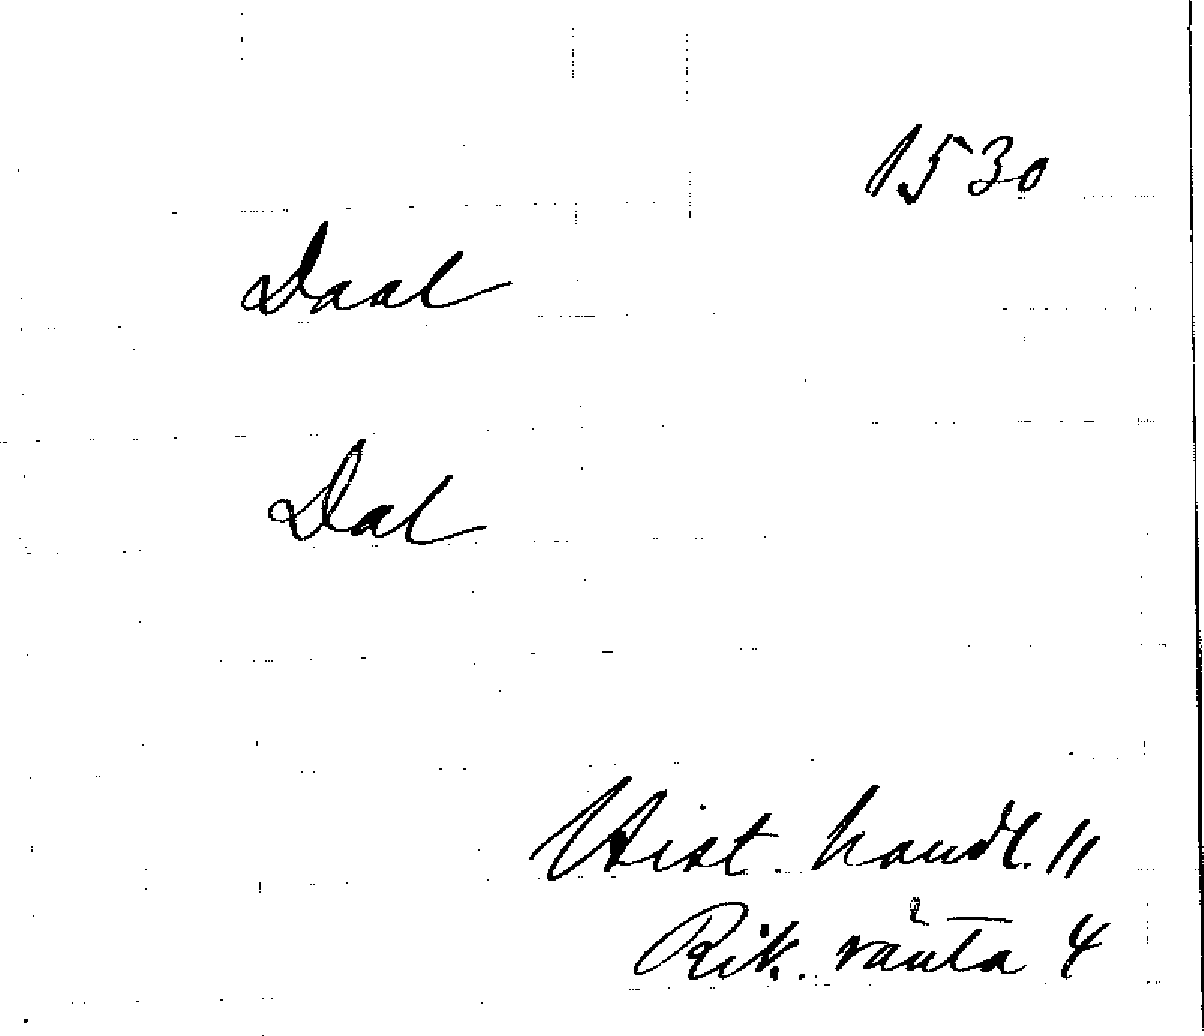 1530
Daal
Dal
Hist. handl. 11
Rik. ränta 4